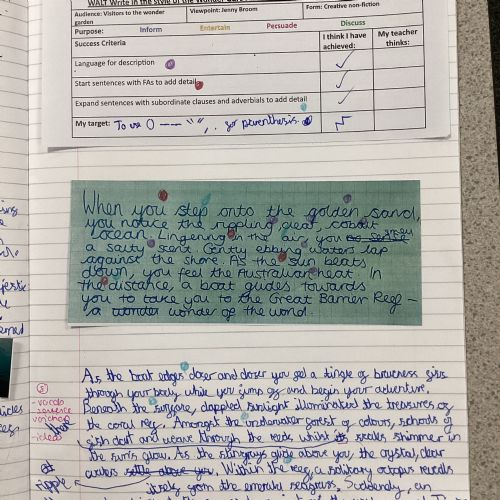 WALT Write in the style of the Wonder
Audience: Visitors to the wonder garden
Viewpoint: Jenny Broom
Form: Creative non-fiction
Purpose: Inform Entertain Persuade Discuss
Success Criteria
I think I have achieved:
My teacher thinks:
Language for description
Start sentences with FAs to add detail
Expand sentences with subordinate clauses and adverbials to add detail
My target: To use () — — " ", , for parenthesis.
When you step onto the golden sand,
you notice the rippling, clear, cobalt
ocean. Lingering in the air, you smell
a salty scent. Gently ebbing waters lap
against the shore. As the sun beats
down, you feel the Australian heat. In
the distance, a boat guides towards
you to take you to the Great Barrier Reef –
a wonder of the world.
As the boat edges closer and closer you feel a tingle of braveness
through your body while you jump off and begin your adventure.
Beneath the surface, dappled sunlight illuminated the treasures of
the coral reef. Amongst the underwater forest of colours, schools of
fish dart and weave through the reeds whilst scales shimmer in
the suns glow. As the stingrays glide above you the crystal, clear
waters settle above you. Within the reef, a solitary octopus reveals
itself from the emerald seagrass. Suddenly, an
- vocab
ripple